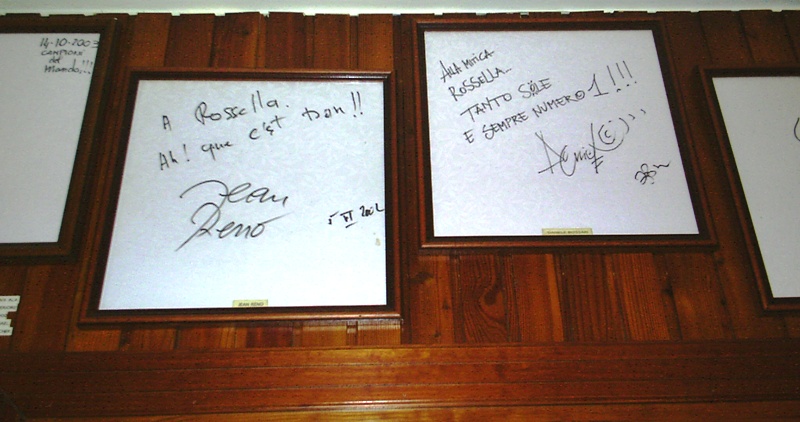 14-10-2003
CAMPIONI
del
Mondo...!!!
A Rossella.
Ah! que c'est bon!!
Jean
Reno
5 VI 2002
JEAN RENO
ALLA MITICA
ROSSELLA...
TANTO SOLE
E SEMPRE NUMERO 1!!!